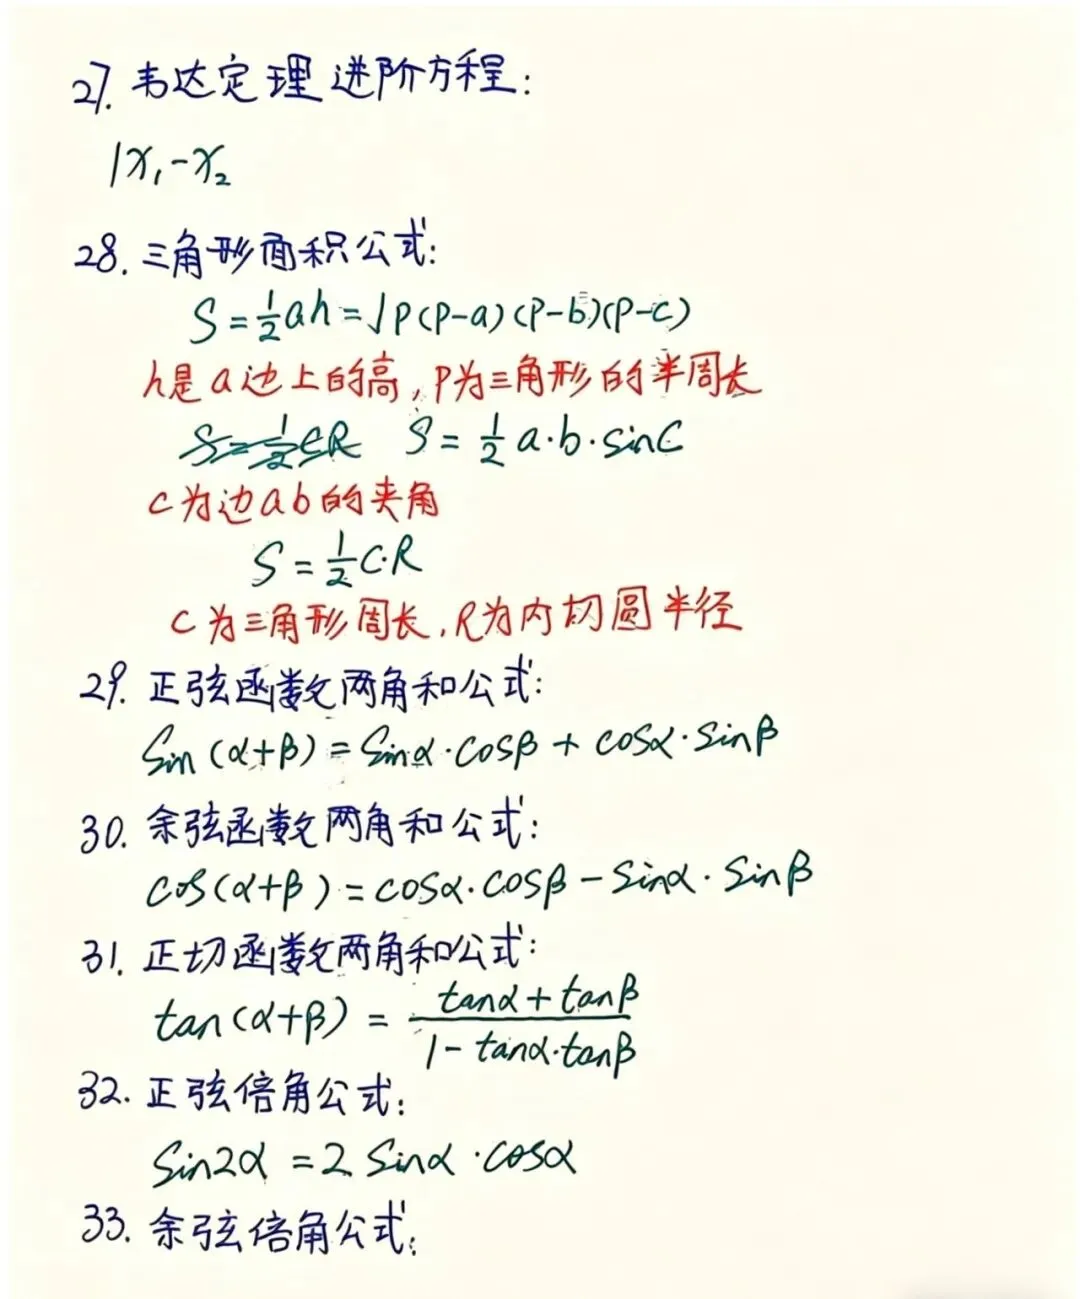 27. 韦达定理进阶方程:
|x₁-x₂
28. 三角形面积公式:
S=½ah=√P(P-a)(P-b)(P-c)
h是a边上的高,P为三角形的半周长
S=½CR S=½a·b·sinC
C为边ab的夹角
S=½C·R
C为三角形周长,R为内切圆半径
29. 正弦函数两角和公式:
Sin(α+β)=Sinα·cosβ+cosα·sinβ
30. 余弦函数两角和公式:
cos(α+β)=cosα·cosβ-Sinα·Sinβ
31. 正切函数两角和公式:
tan(α+β)=
tanα+tanβ
1-tanα·tanβ
32. 正弦倍角公式:
Sin2α=2Sinα·cosα
33. 余弦倍角公式: